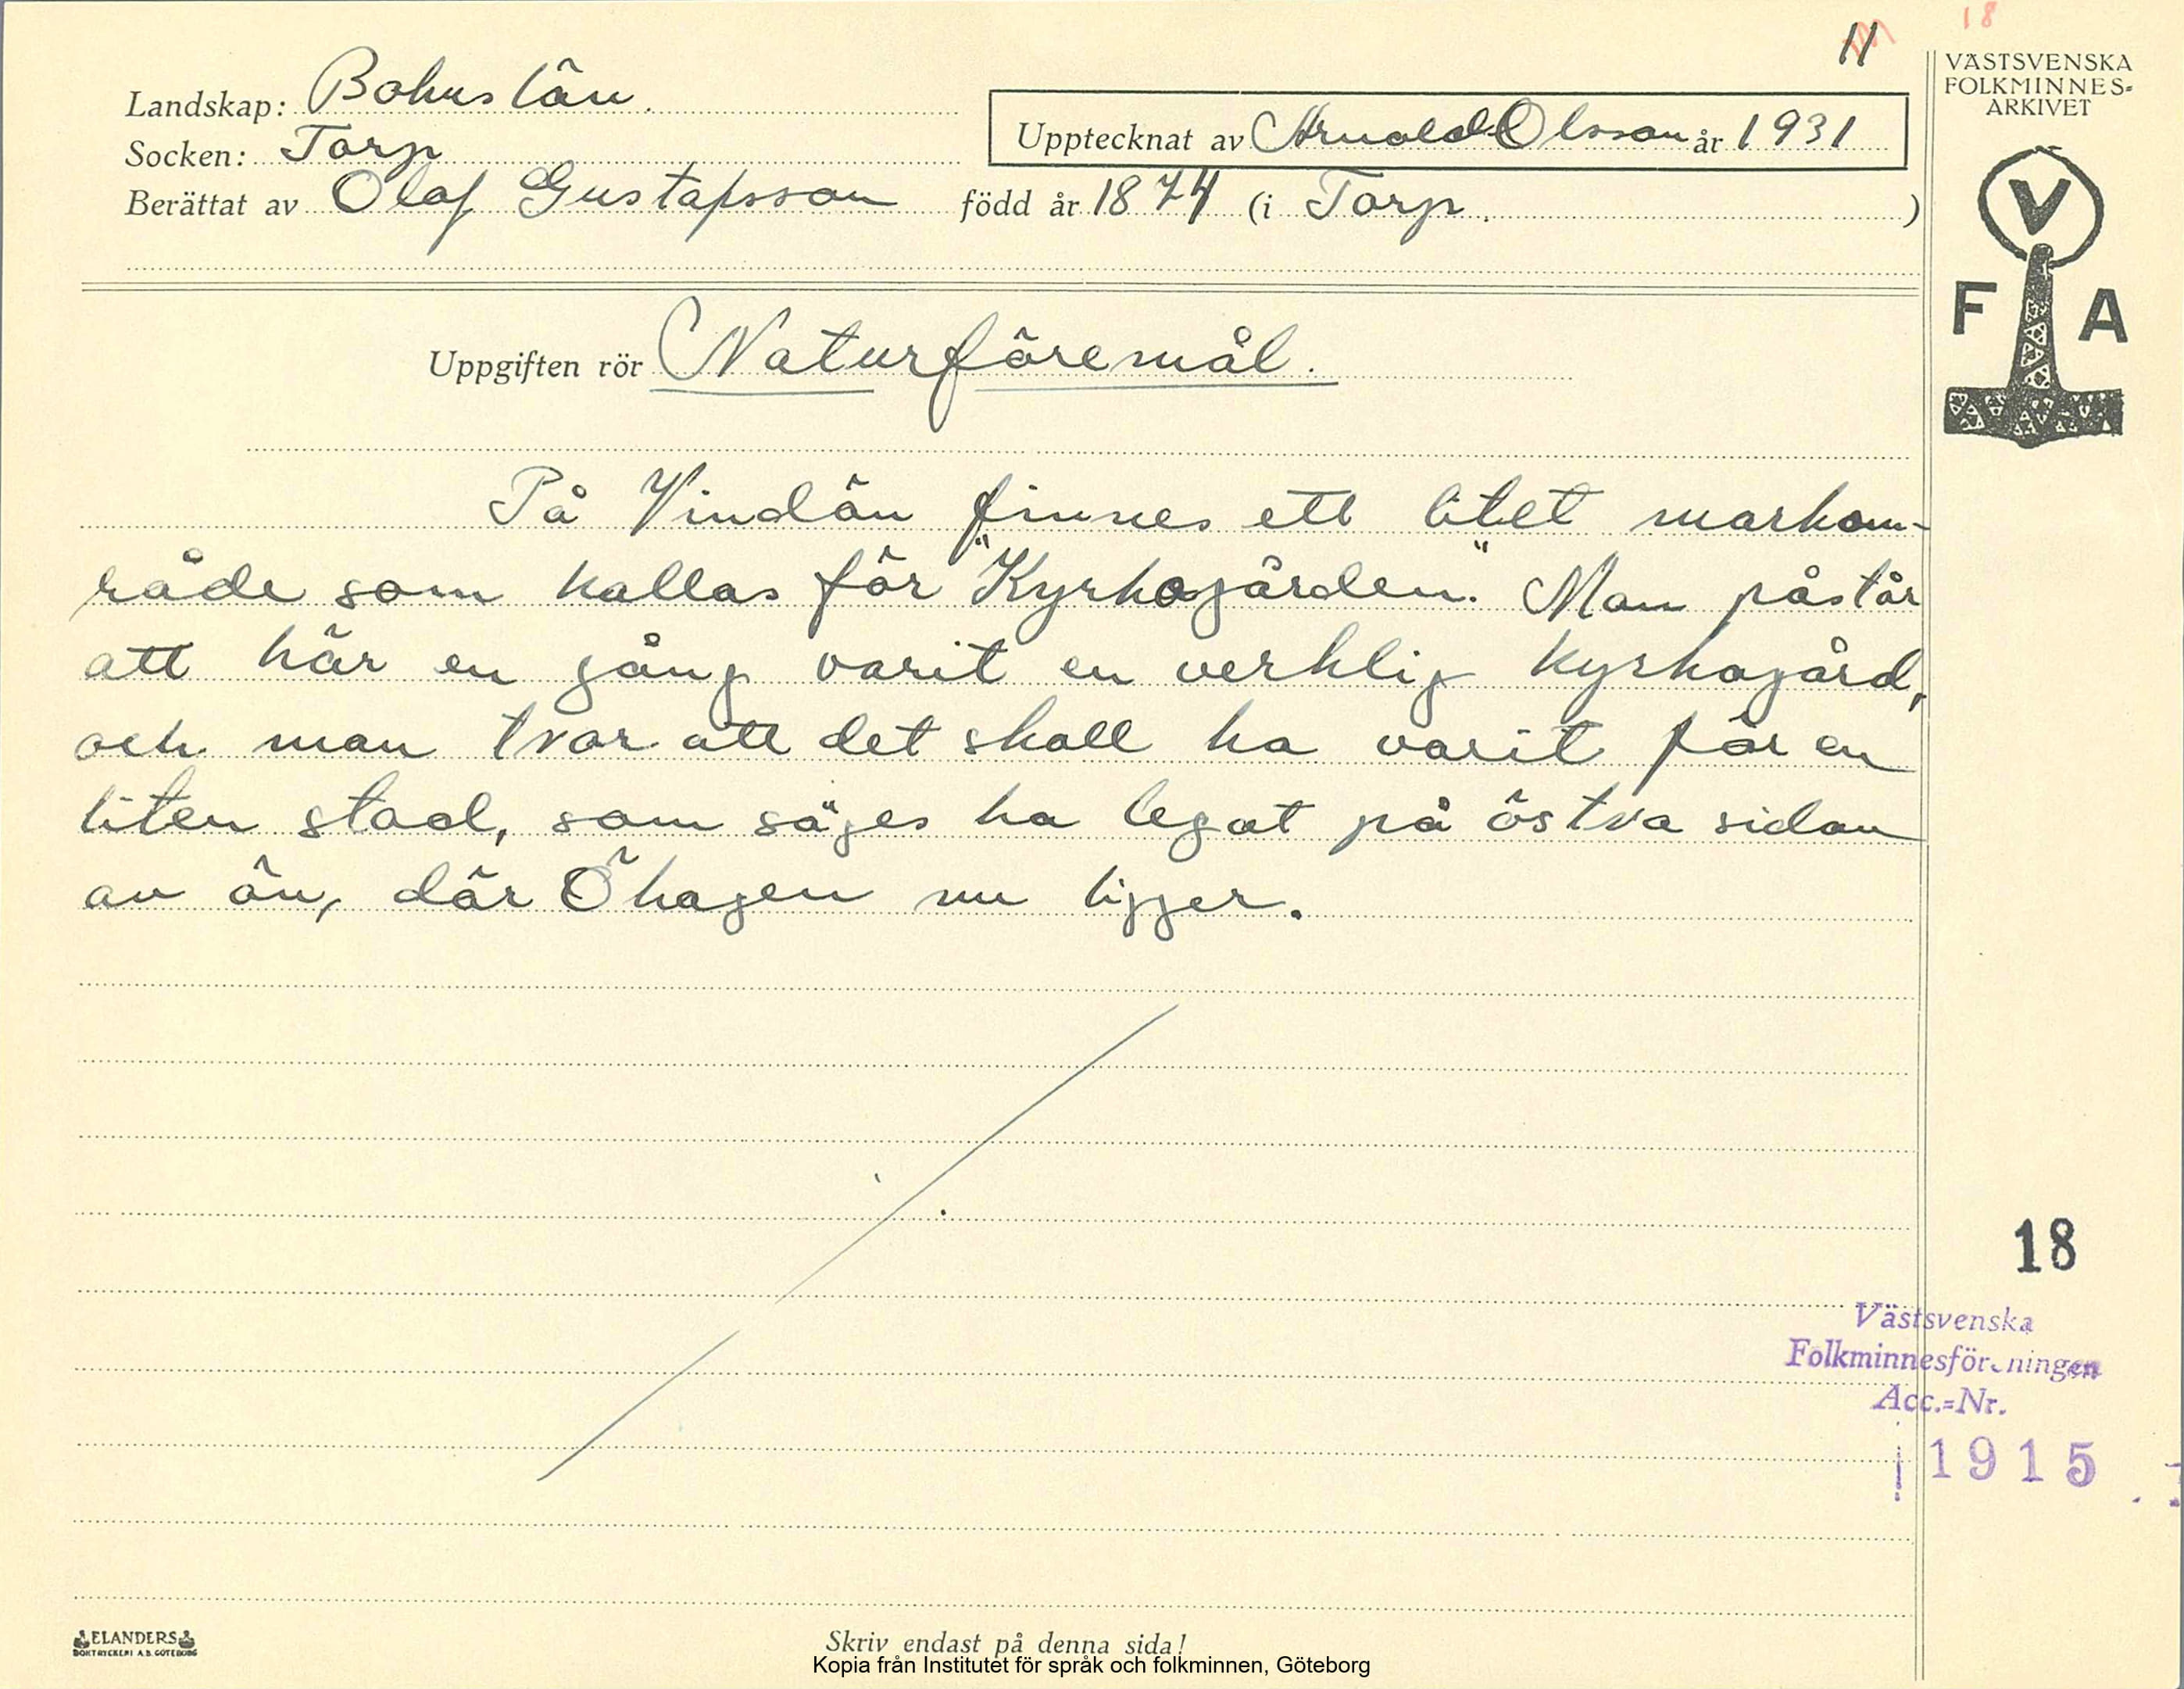 11 18
VÄSTSVENSKA
FOLKMINNES-
ARKIVET
Landskap: Bohuslän.
Upptecknat av Arnold Olsson år 1931
Socken: Torp
Berättat av Olaf Gustafsson född år 1874 (i Torp.)
V
F A
Uppgiften rör Naturföremål.
På Vindön finnes ett litet markom-
råde som kallas för "Kyrkogården." Man påstår
att här en gång varit en verklig kyrkogård,
och man tror att det skall ha varit för en
liten stad, som säges ha legat på östra sidan
av ön, där Öhagen nu ligger.
18
Västsvenska
Folkminnesföreningen
Acc.-Nr.
1915
ELANDERS
BOKTRYCKERI A.B. GÖTEBORG
Skriv endast på denna sida!
Kopia från Institutet för språk och folkminnen, Göteborg